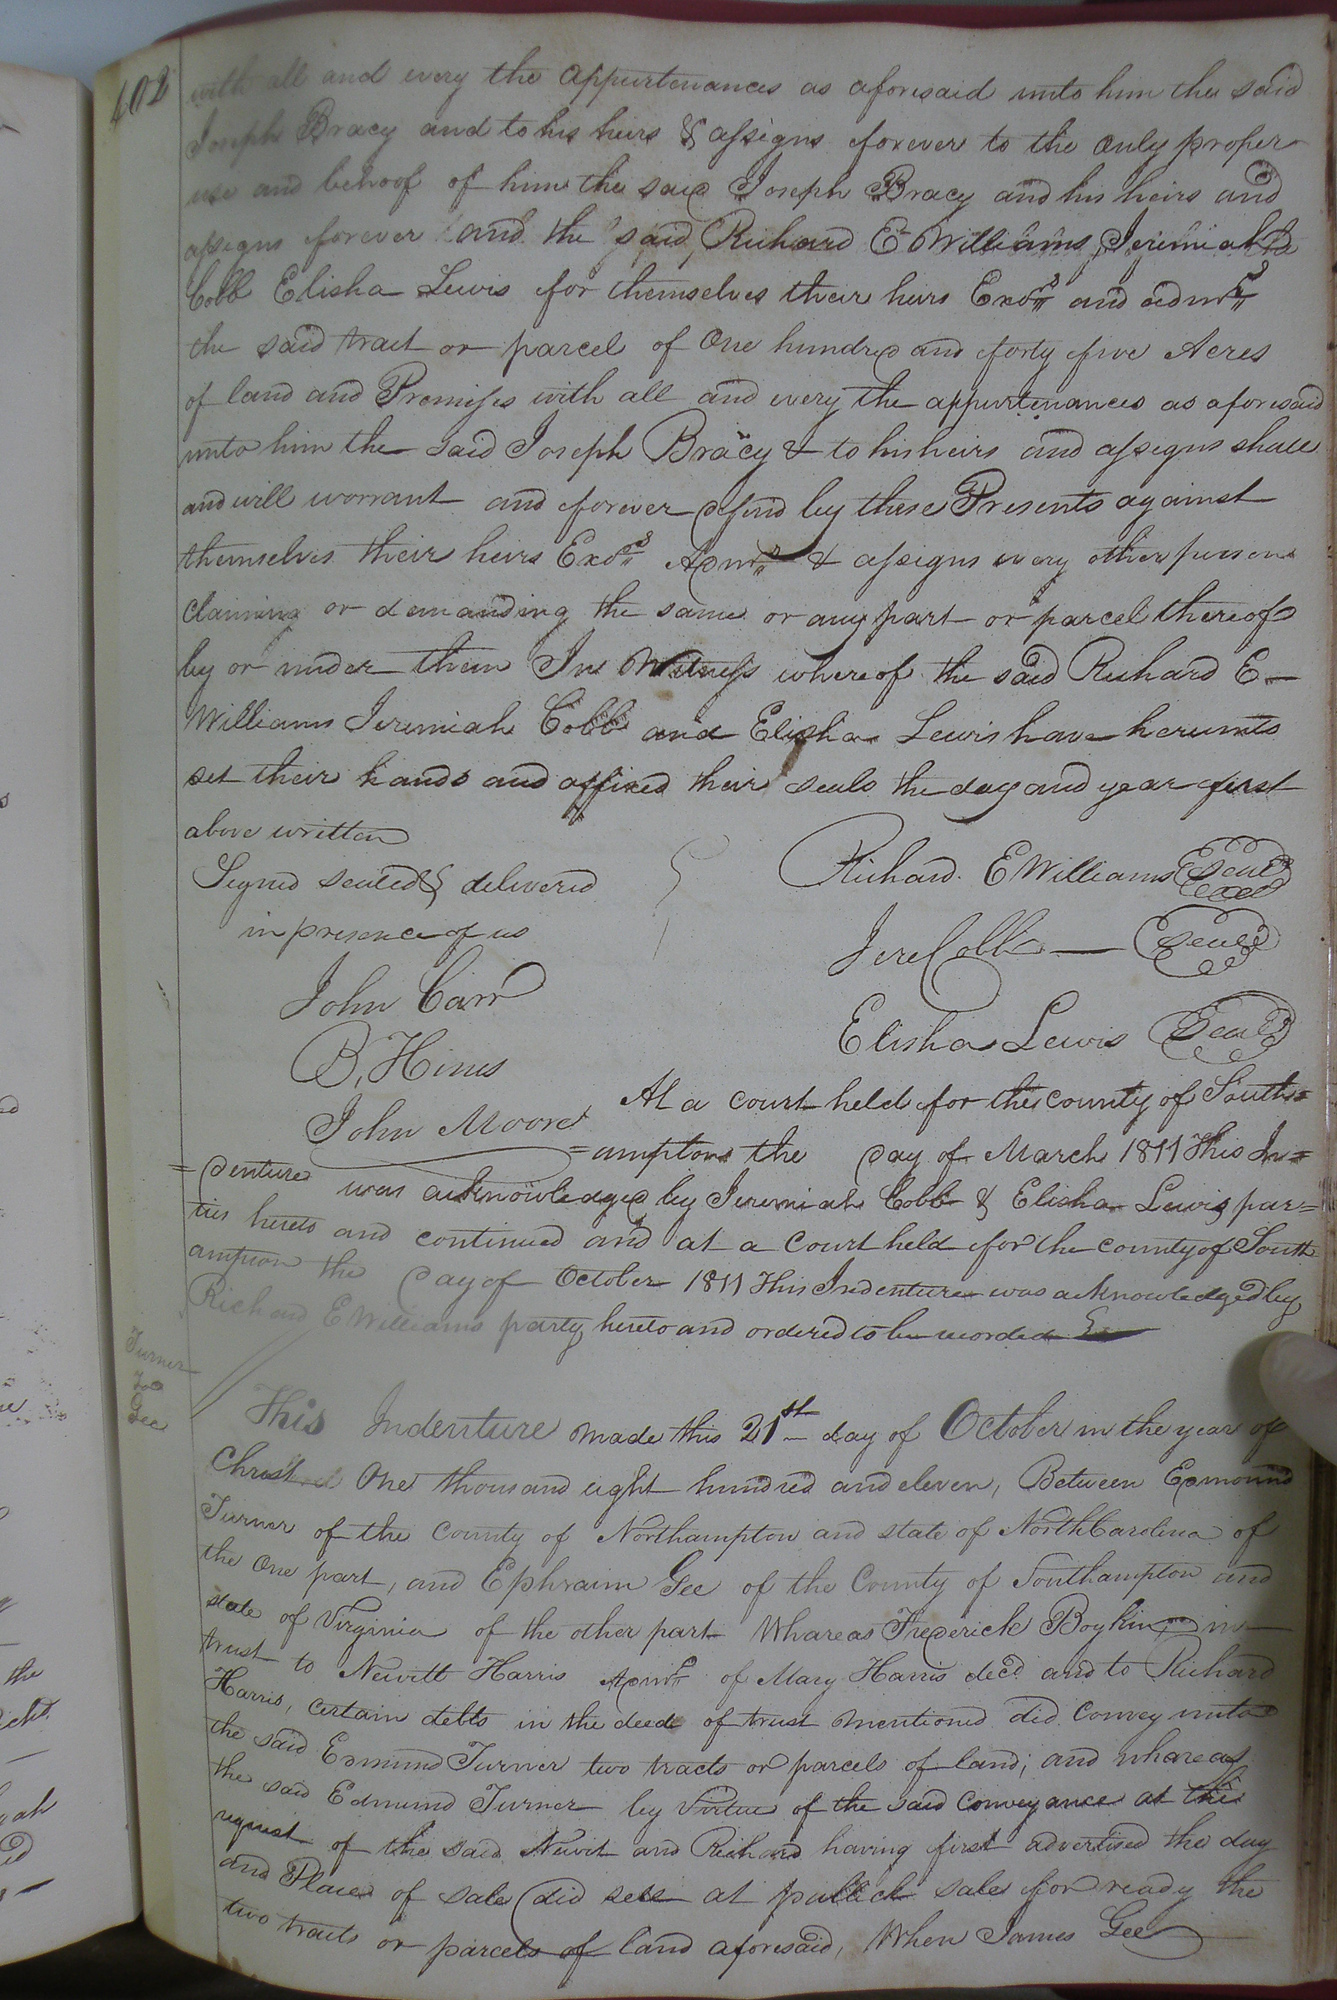 402
with all and every the appurtenances as aforesaid unto him the said
Joseph Bracy and to his heirs & assigns forever to the only proper
use and behoof of him the said Joseph Bracy and his heirs and
assigns forever and the said Richard E Williams Jeremiah
Cobb Elisha Lewis for themselves their heirs Exors and admrs
the said tract or parcel of One hundred and forty five Acres
of land and Premises with all and every the appurtenances as aforesaid
unto him the said Joseph Bracy & to his heirs and assigns shall
and will worrant and forever defend by these Presents against
themselves their heirs Exors Admrs & assigns every other persons
claiming or demanding the same or any part or parcel thereof
by or under them In Witness whereof the said Richard E
Williams Jeremiah Cobb and Elisha Lewis have hereunto
set their hands and affixed their seals the day and year first
above written
Signed sealed & delivered
in presence of us
Richard E Williams Seal
Jere Cobb Seal
Elisha Lewis Seal
John Carr
B. Hines
John Moore
At a court held for the county of South=
=ampton the day of March 1811 This In=
=denture was acknowledged by Jeremiah Cobb & Elisha Lewis par=
ties hereto and continued and at a court held for the county of South
ampton the day of October 1811 This Indenture was acknowledged by
Richard E Williams party hereto and ordered to be recorded
Turner
to
Gee
This Indenture made this 21st day of October in the year of
Christ One thousand eight hundred and eleven, Between Edmound
Turner of the County of Northampton and state of North Carolina of
the One part, and Ephraim Gee of the County of Southampton and
state of Virginia of the other part Whareas Frederick Boykin in
trust to Newitt Harris Admr of Mary Harris decd and to Richard
Harris, certain debts in the deed of trust mentioned did convey unto
the said Edmund Turner two tracts or parcels of land; and whareas
the said Edmund Turner by Virtue of the said conveyance at the
request of the said Newit and Richard having first advertised the day
and Place of sale did sell at publick sale for ready the
two tracts or parcels of land aforesaid, When James Gee